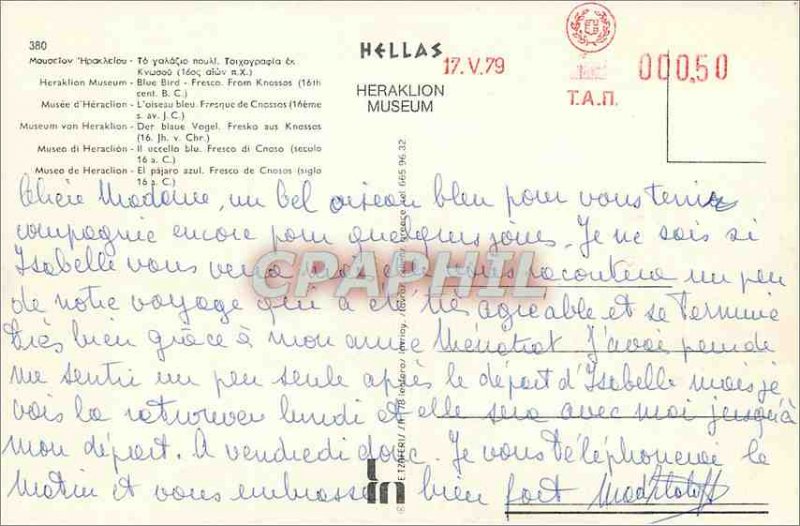 380
Μουσεῖον Ἡρακλείου - Τό γαλάζιο πουλί. Τοιχογραφία ἐκ
Κνωσοῦ (16ος αἰών π.Χ.)
Heraklion Museum - Blue Bird - Fresco. From Knossos (16th
cent. B. C.)
Musée d'Héraclion - L'oiseau bleu. Fresque de Cnossos (16ème
s. av. J. C.)
Museum von Heraklion - Der blaue Vogel. Fresko aus Knossos
(16. Jh. v. Chr.)
Museo di Heraklion - Il uccello blu. Fresco di Cnoso (secolo
16 a. C.)
Museo de Heraclion - El pájaro azul. Fresco de Cnosos (siglo
16 a. C.)
HELLAS
HERAKLION
MUSEUM
17.V.79
Τ.Α.Π.
000,50
Chère Madame, un bel oiseau bleu pour vous tenir
compagnie encore pour quelques jours. Je ne sais si
Isabelle vous verra mais elle vous racontera un peu
de notre voyage qui a été très agréable et se termine
très bien grâce à mon amie J'avais peur de
me sentir un peu seule après le départ d'Isabelle mais je
vais la retrouver lundi et elle sera avec moi jusqu'à
mon départ. A vendredi donc. Je vous téléphonerai le
matin et vous embrasse bien fort
665 96 32
CPARHIL